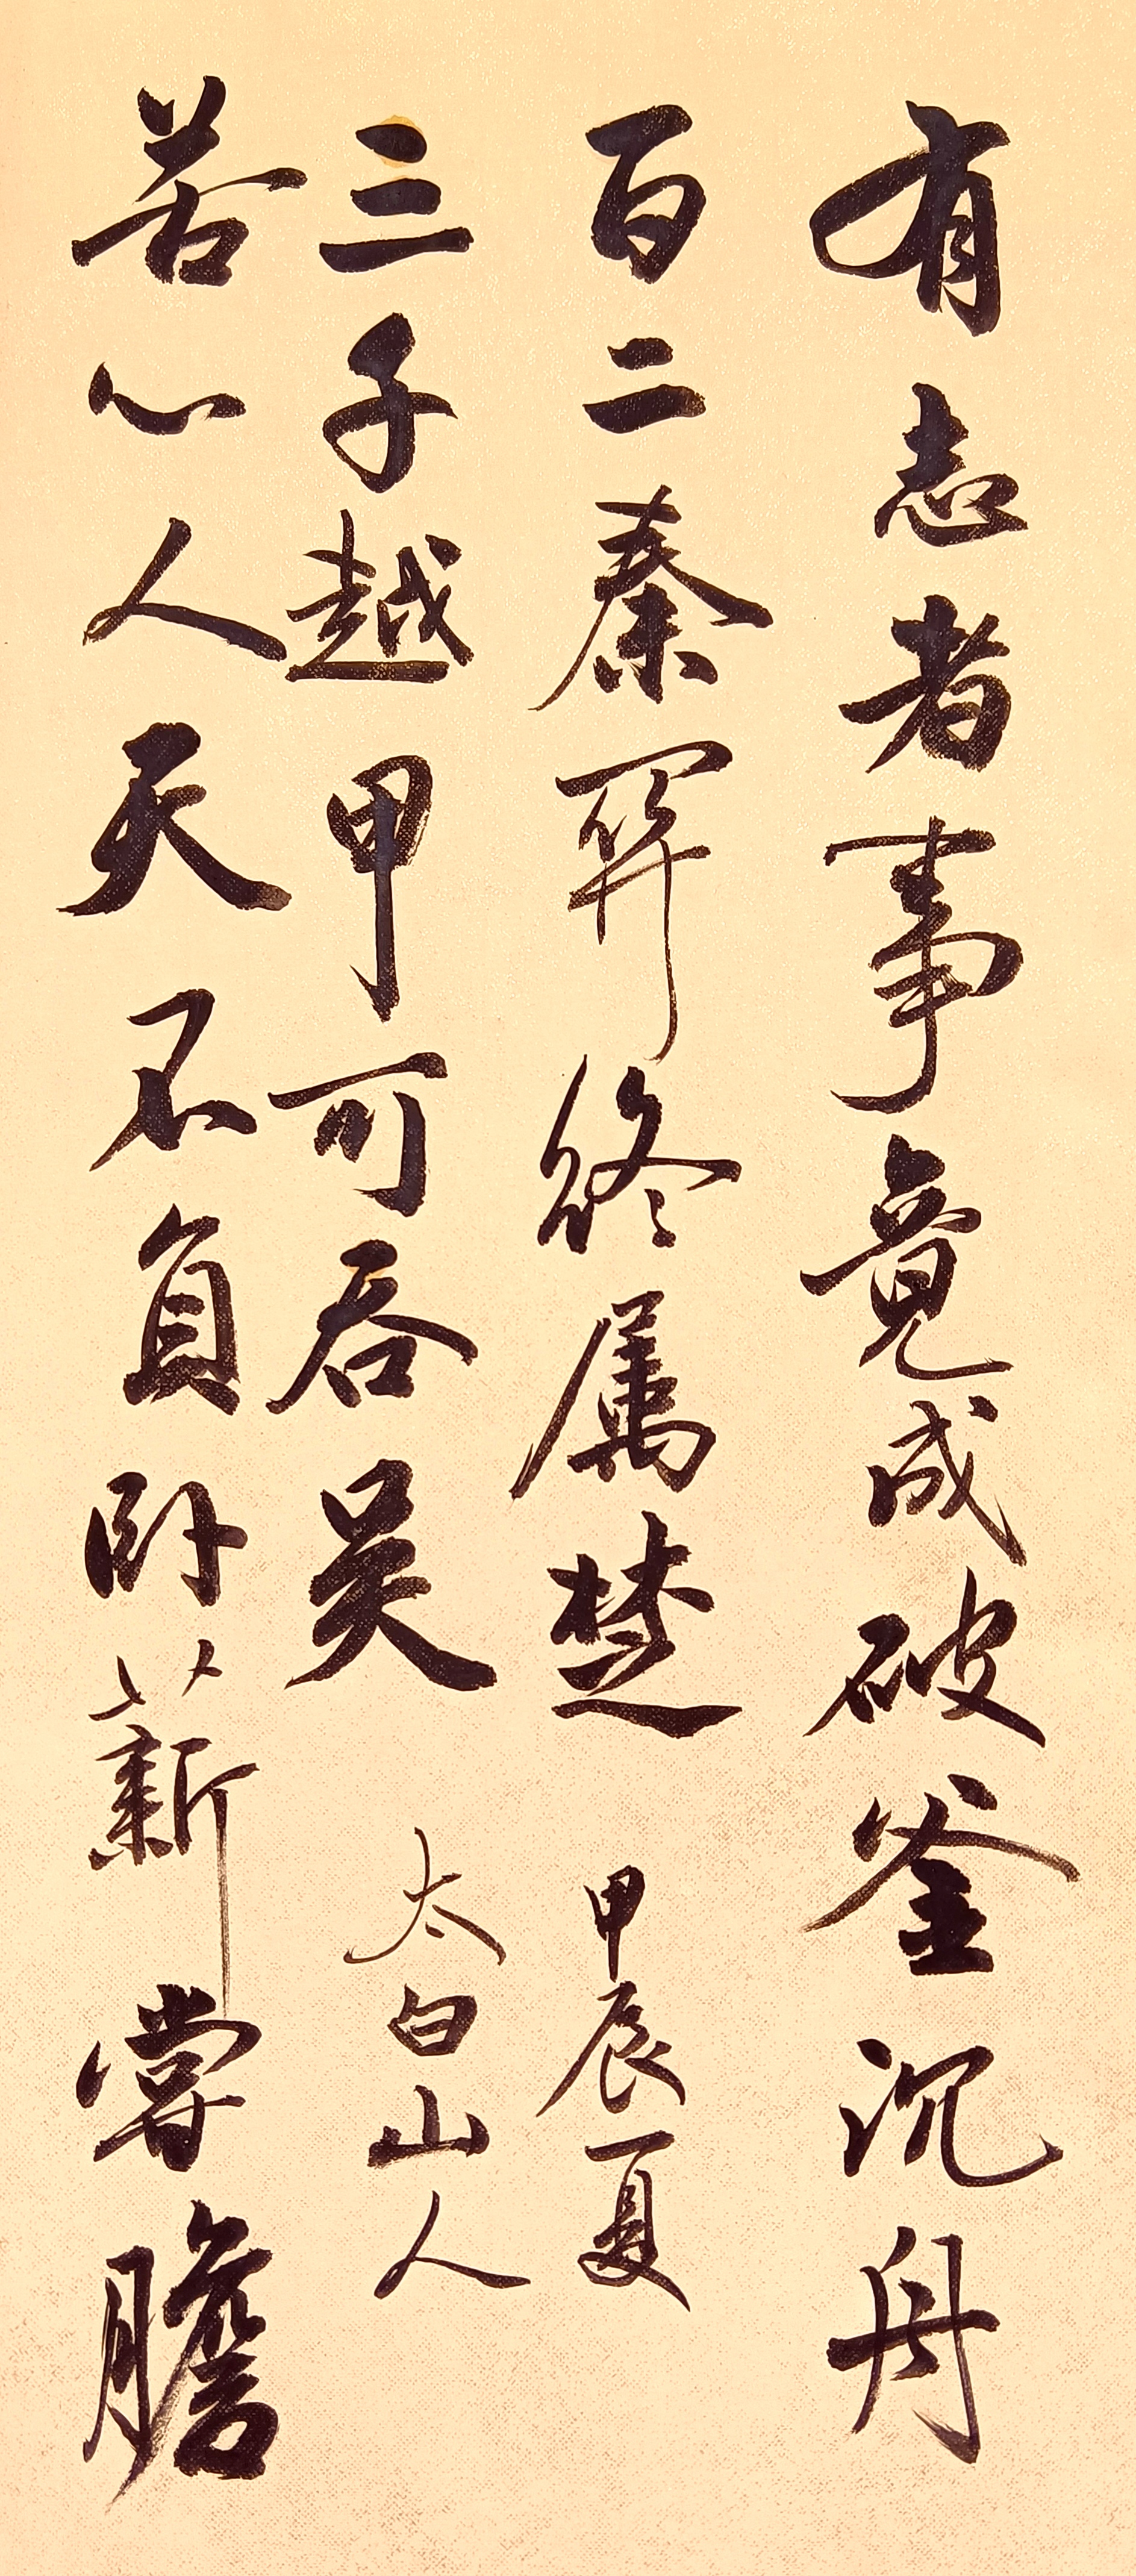 有志者事竟成破釜沉舟
百二秦關終屬楚
甲辰夏
苦心人天不負卧薪嘗膽
三千越甲可吞吳
太白山人